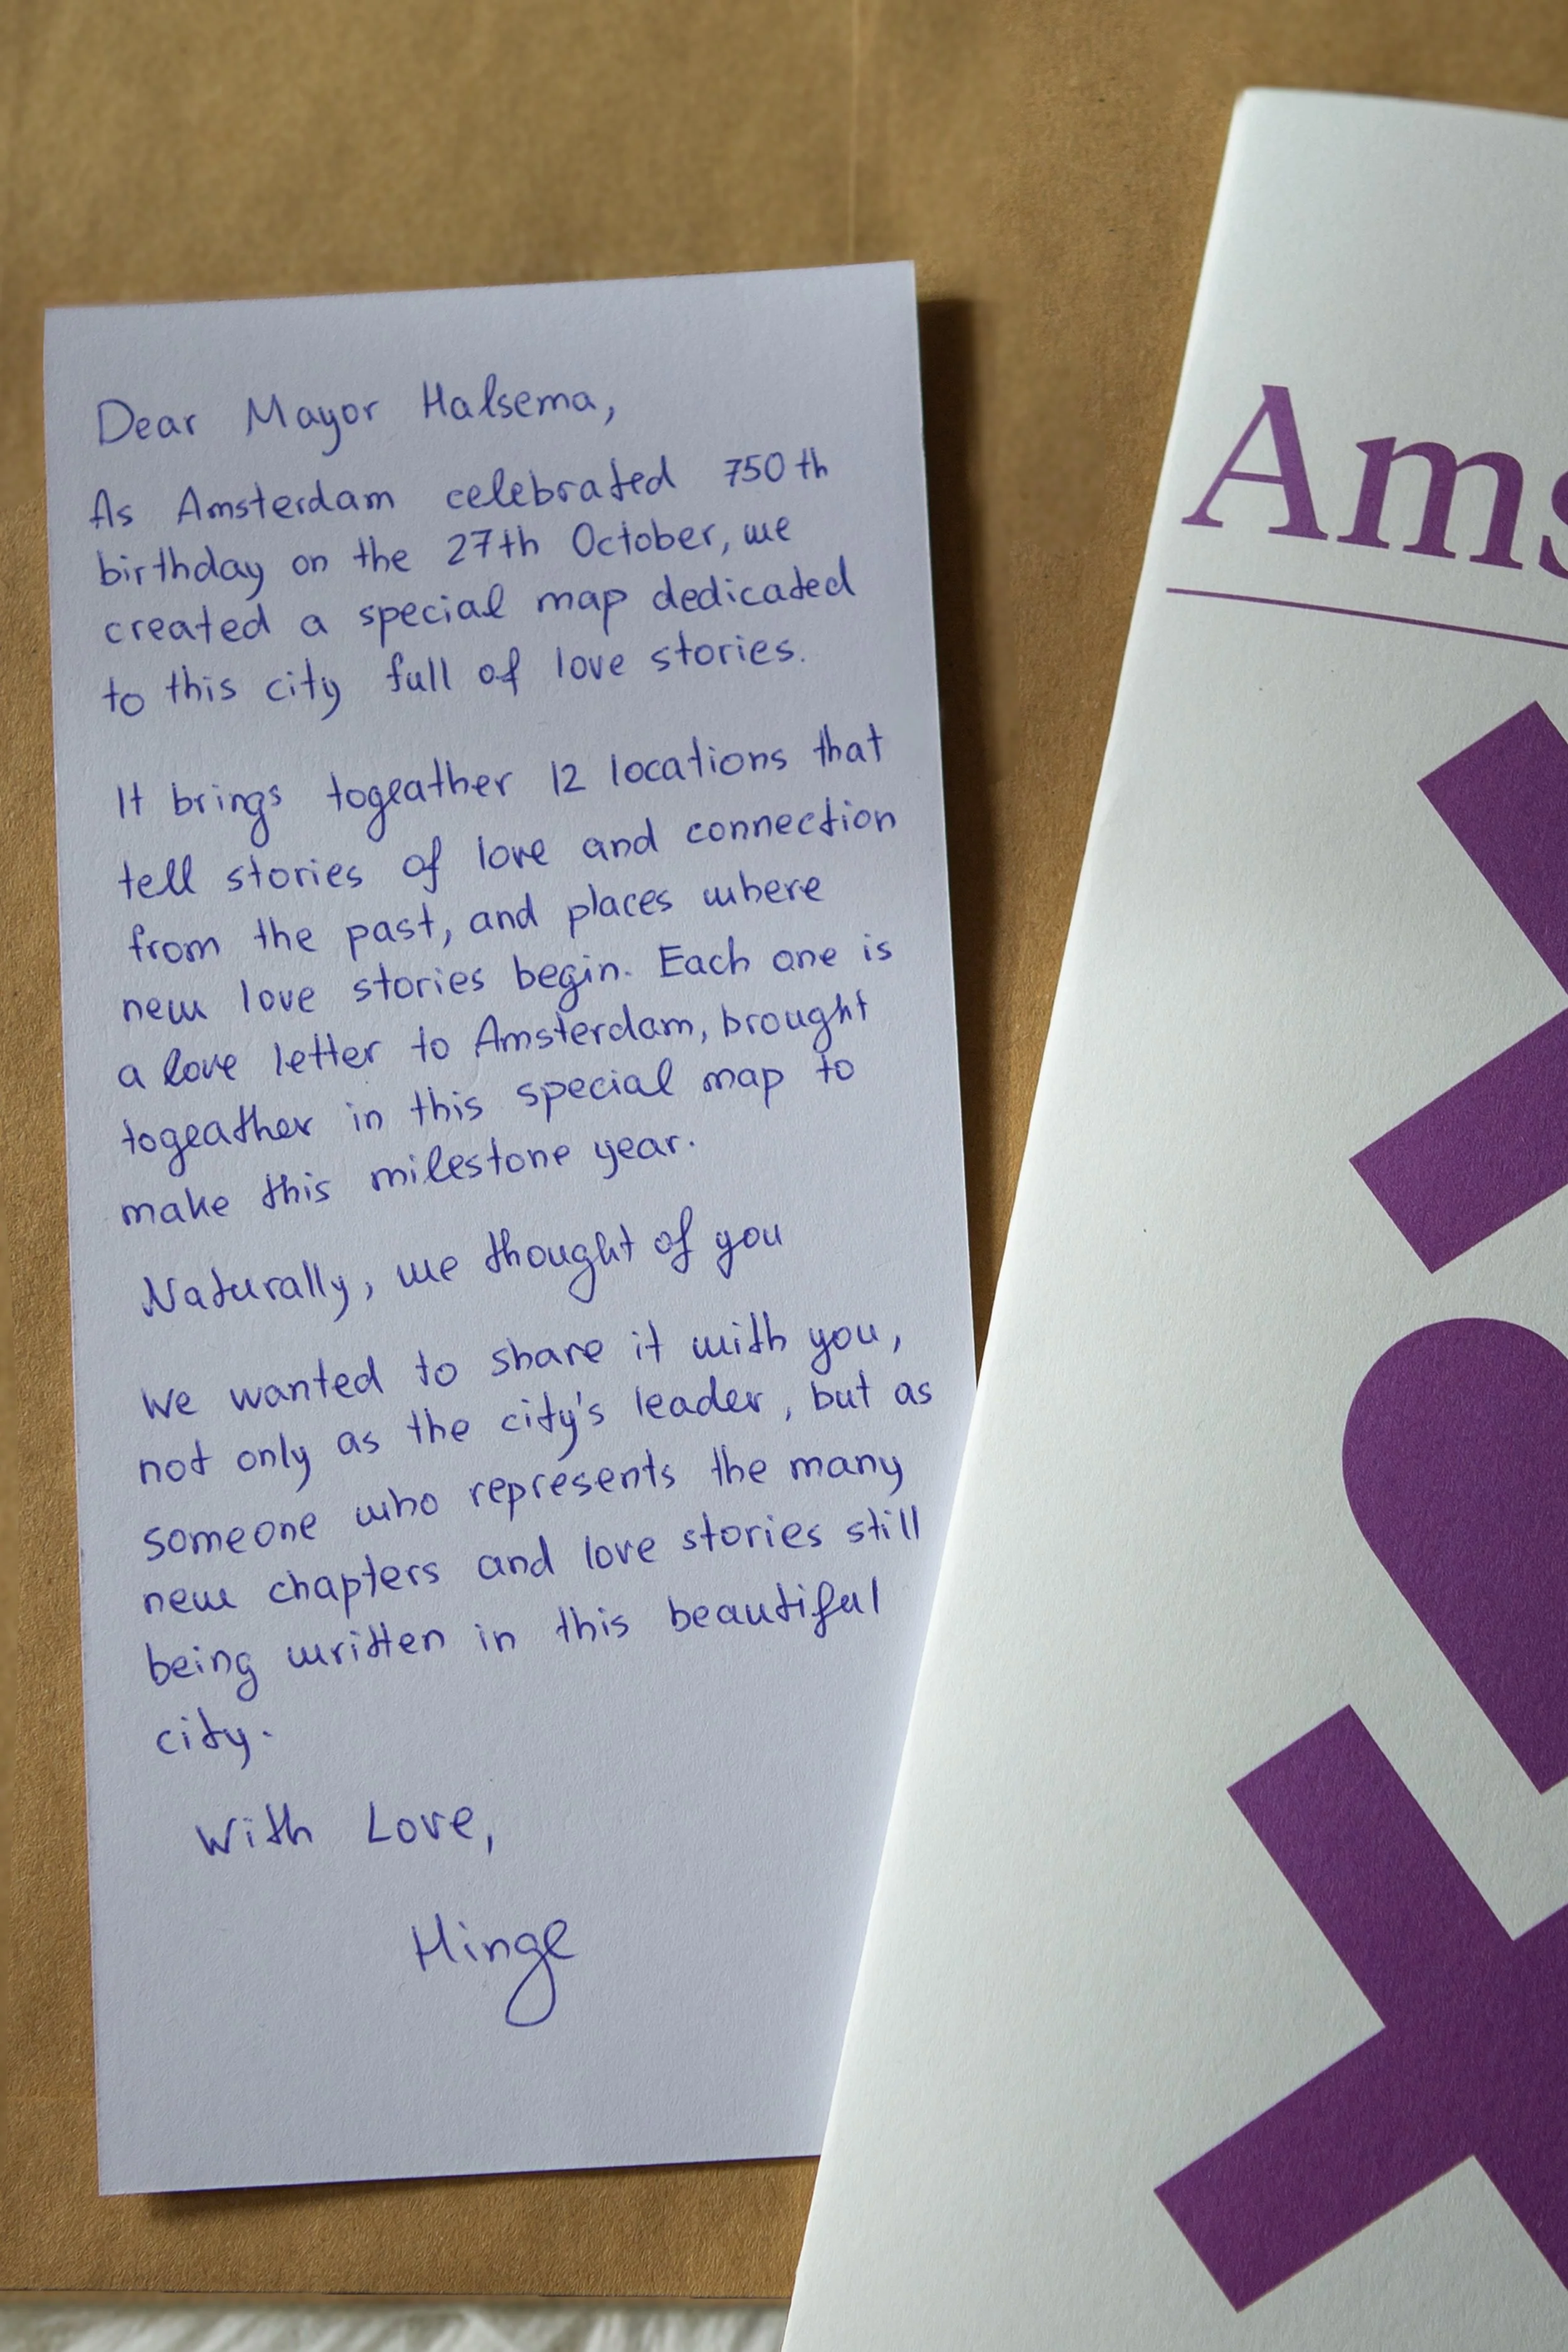 Dear Mayor Halsema,
As Amsterdam celebrated 750th
birthday on the 27th October, we
created a special map dedicated
to this city full of love stories.
It brings togeather 12 locations that
tell stories of love and connection
from the past, and places where
new love stories begin. Each one is
a love letter to Amsterdam, brought
togeather in this special map to
make this milestone year.
Naturally, we thought of you
We wanted to share it with you,
not only as the city's leader, but as
someone who represents the many
new chapters and love stories still
being written in this beautiful
city.
With Love,
Hinge
Ams